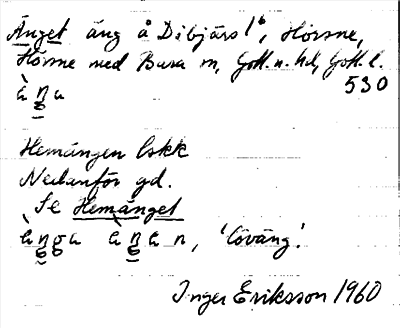 Änget äng å Dibjärs 1⁶, Hörsne,
Hörsne med Bara sn, Gotl. n. hd, Gotl. l.
530
Hemängen lskk
Nedanför gd.
Se Hemänget
'löväng'.
Inger Eriksson 1960